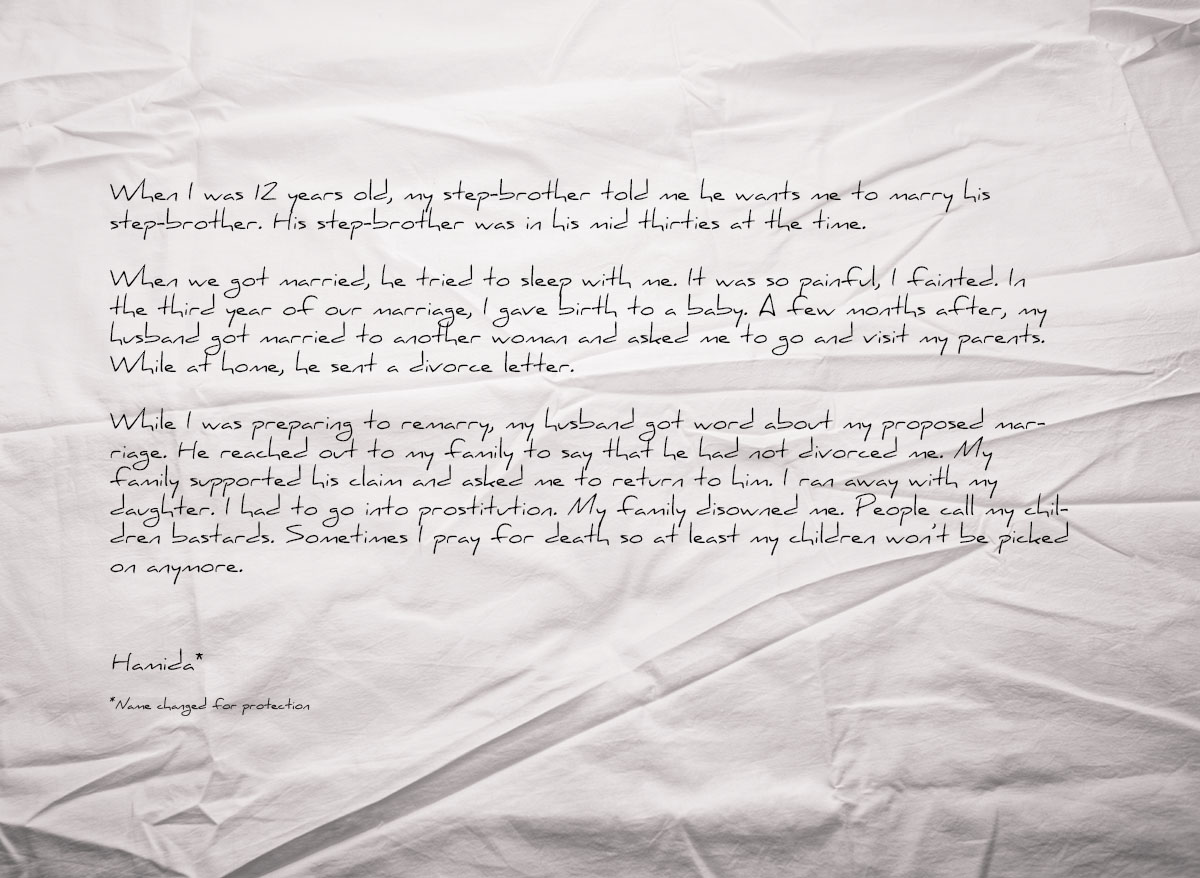 When I was 12 years old, my step-brother told me he wants me to marry his
step-brother. His step-brother was in his mid thirties at the time.
When we got married, he tried to sleep with me. It was so painful, I fainted. In
the third year of our marriage, I gave birth to a baby. A few months after, my
husband got married to another woman and asked me to go and visit my parents.
While at home, he sent a divorce letter.
While I was preparing to remarry, my husband got word about my proposed mar-
riage. He reached out to my family to say that he had not divorced me. My
family supported his claim and asked me to return to him. I ran away with my
daughter. I had to go into prostitution. My family disowned me. People call my chil-
dren bastards. Sometimes I pray for death so at least my children won't be picked
on anymore.
Hamida*
*Name changed for protection